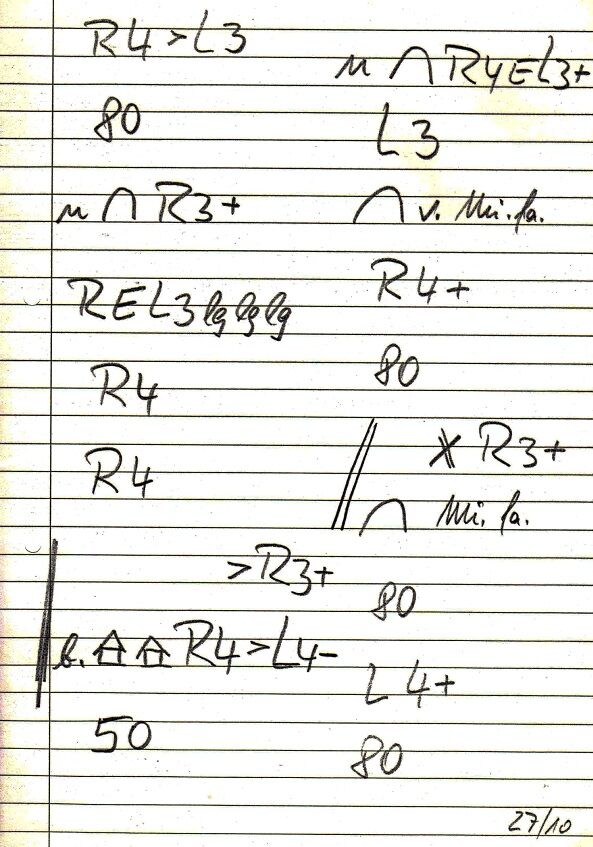 R4 > L3
80
∩ R3+
REL3 lg lg lg
R4
R4
> R3+
b. R4 > L4-
50
∩ R4EL3+
L3
∩ v. Mi. fa.
R4+
80
R3+
∩ Mi. fa.
80
L4+
80
27/10